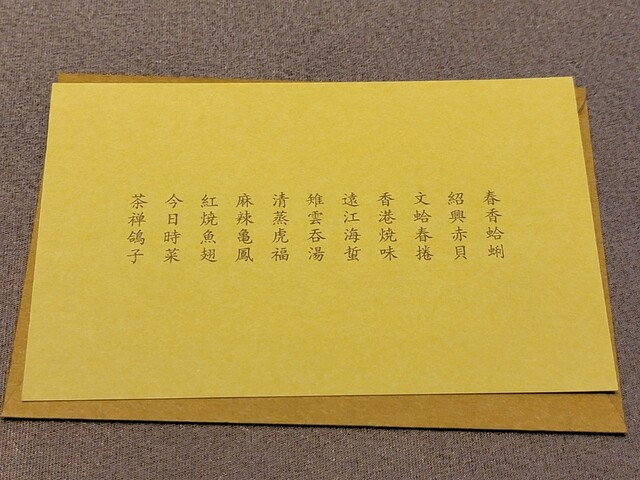 春香蛤蜊
紹興赤貝
文蛤春捲
香港焼味
遠江海蜇
雉雲呑湯
清蒸虎福
麻辣亀鳳
紅焼魚翅
今日時菜
茶禅鴿子